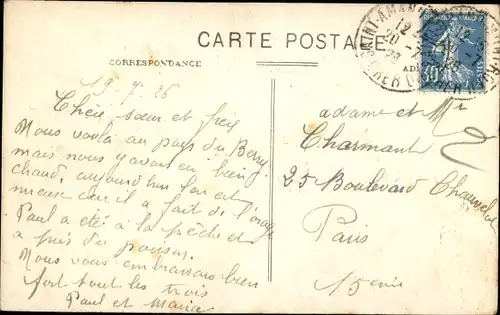 CARTE POSTALE
CORRESPONDANCE
19-7-26
Chère sœur et
Nous voilà au pays du Berry
mais nous y avons eu bien
chaud, aujourd'hui l'on est
mieux car il a fait de l'orage
Paul a été à la pêche et
a pris du poisson.
Nous vous embrassons bien
fort tous les trois
Paul et Maria
adame et Mr
Charmant
25 Boulevard
Paris
15 eme
SAINT-AMAND
CHER
30